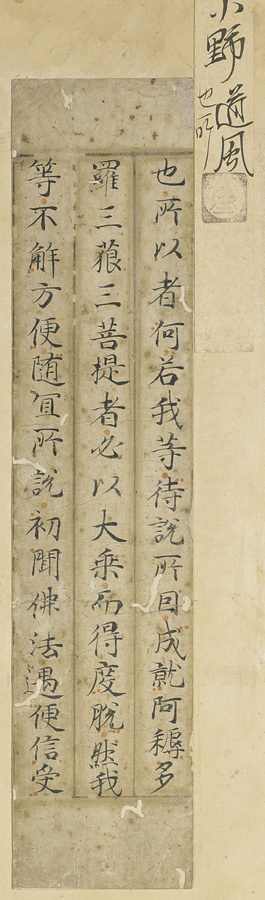 小野道風
也所
也所以者何若我等待說所因成就阿耨多
羅三藐三菩提者必以大乘而得度脫然我
等不解方便随冝所說初聞佛法遇便信受